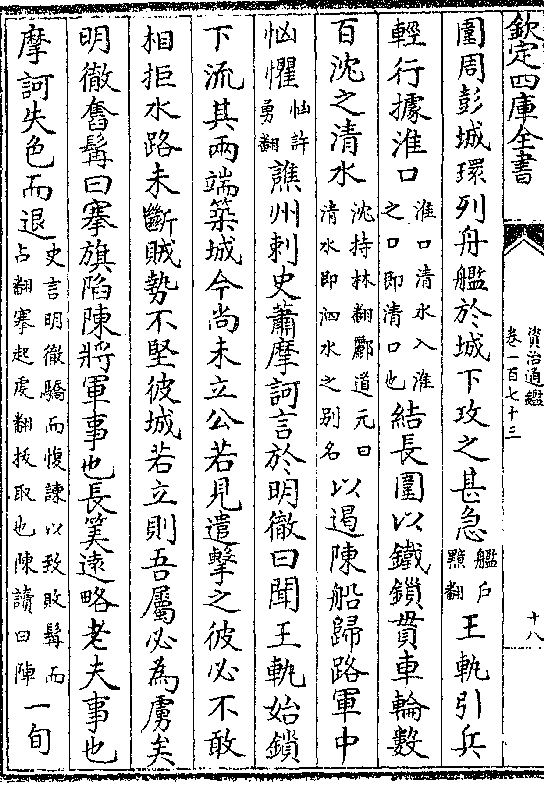 欽定四庫全書
資治通鑑
卷一百七十三
十八
圍周彭城環列舟艦於城下攻之甚急艦户黯翻王軌引兵
輕行據淮口淮口清水入淮之口即清口也結長圍以鐵鎖貫車輪數
百沈之清水沈持林翻酈道元曰清水即泗水之别名以遏陳船歸路軍中
恟懼恟許勇翻譙州刺史蕭摩訶言於明徹曰聞王軌始鎖
下流其兩端築城今尚未立公若見遣擊之彼必不敢
相拒水路未斷賊勢不堅彼城若立則吾屬必為虜矣
明徹奮髯曰搴旗陷陳將軍事也長筭遠略老夫事也
摩訶失色而退史言明徹驕而愎諫以致敗髯而占翻搴起虔翻拔取也陳讀曰陣一旬